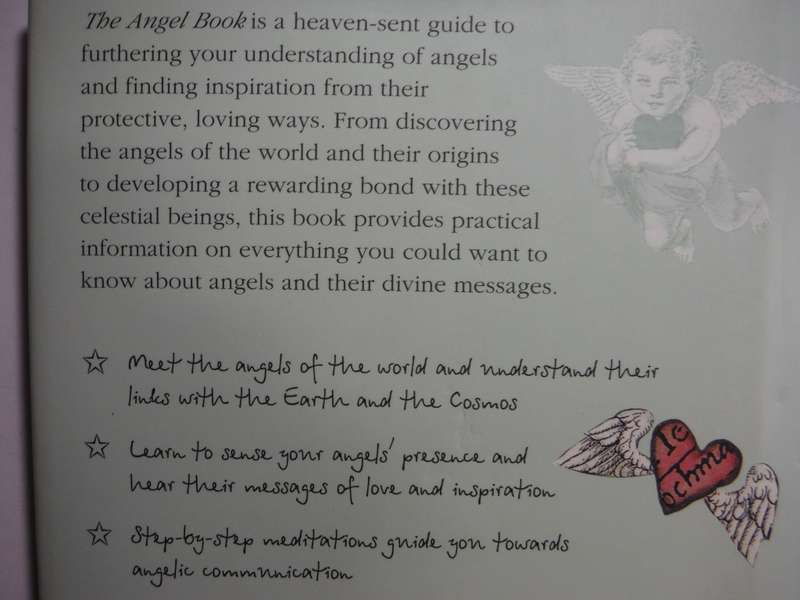 The Angel Book is a heaven-sent guide to
furthering your understanding of angels
and finding inspiration from their
protective, loving ways. From discovering
the angels of the world and their origins
to developing a rewarding bond with these
celestial beings, this book provides practical
information on everything you could want to
know about angels and their divine messages.
Meet the angels of the world and understand their
links with the Earth and the Cosmos
Learn to sense your angels' presence and
hear their messages of love and inspiration
Step-by-step meditations guide you towards
angelic communication